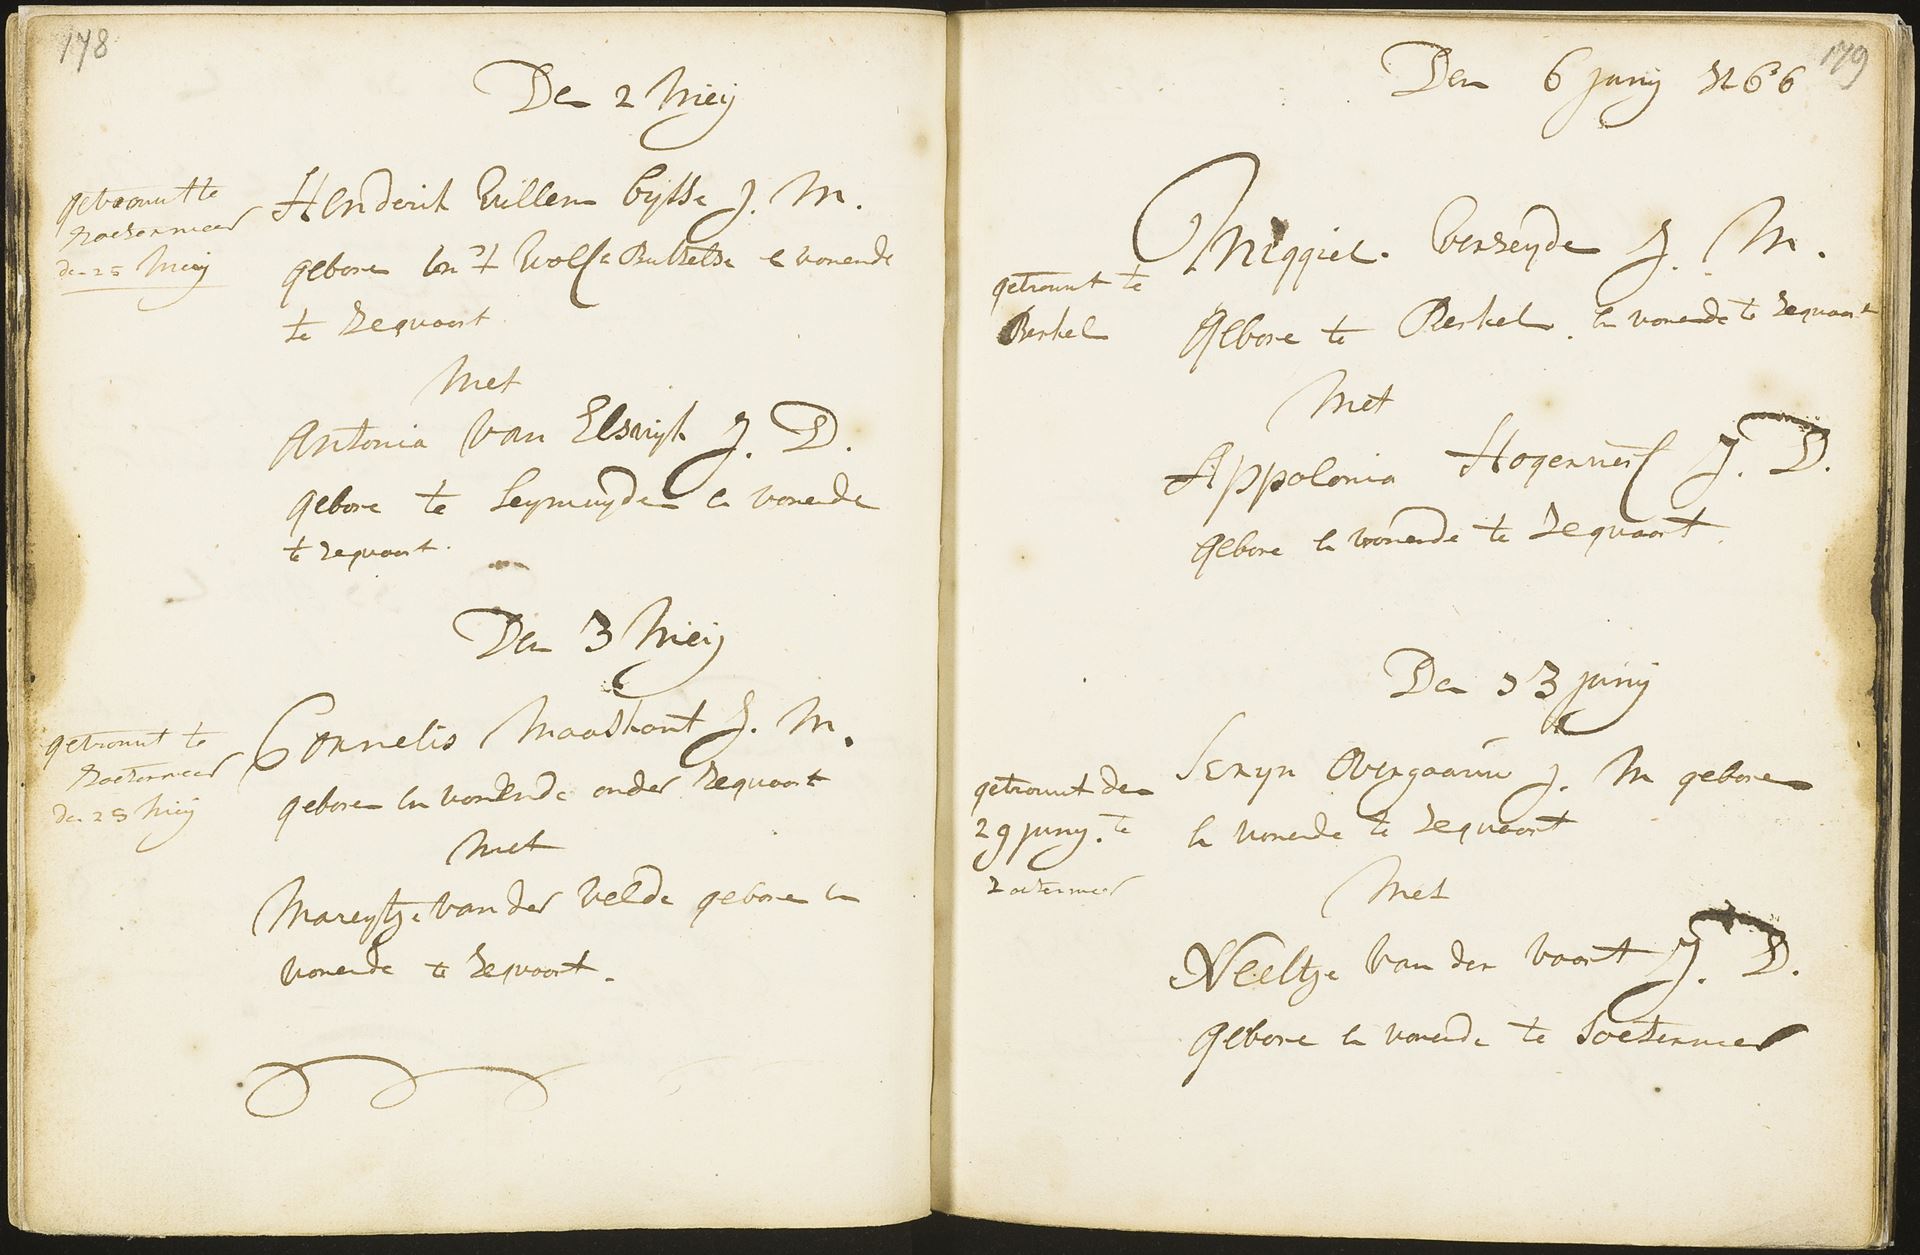 178
De 2 Meij
getrouwt te
Zoetermeer
de 25 Meij
Henderik Willem J. M.
gebore en wonende
te Zeqvaart
Met
Antonia van Elswyk J. D.
gebore te Leymuyden en wonende
te zeqvaart.
Den 3 Meij
getrouwt te
Zoetermeer
de 25 Meij
Cornelis Maaskant J. M.
geboren en wonende onder Zeqvaart
Met
Mareytje van der velde gebore en
wonende te Zeqvaart.
179
Den 6 junij 1766
getrouwt te
Berkel
Miggiel. Verzeyde J. M.
gebore te Berkel. en wonende te Zeqvaart
Met
Appolonia Hogerwerf J. D.
gebore en wonende te Zeqvaart
De 13 junij
getrouwt den
29 juny. te
Zoetermeer
Seryn Overgaauw J. M gebore
en wonende te Zeqvaart
Met
Neeltje van der vaart J. D.
gebore en wonende te Soetermeer